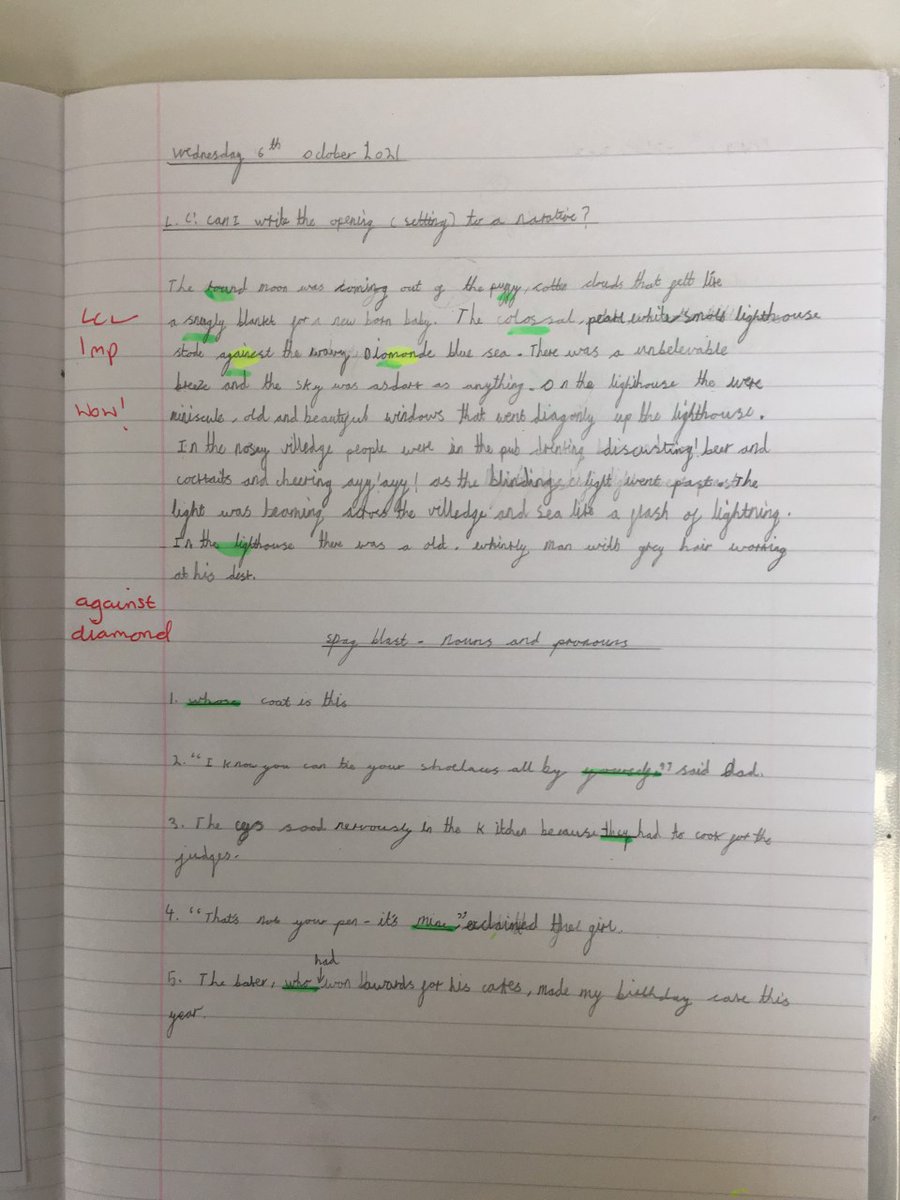 Wednesday 6th October 2021
L.C! can I write the opening (setting) to a narative?
The round moon was coming out of the puffy, cotten clouds that felt like
LCL
a snugly blanket for a new born baby. The colossal, pearl white small lighthouse
Imp
stode against the wavey Diamonde blue sea. There was a unbelevable
breeze and the sky was asdark as anything. On the lighthouse the were
Wow!
miniscule, old and beautiful windows that went diagonly up the lighthouse.
In the nosey villedge people were in the pub drinking discusting! beer and
cocktails and cheering ayy! ayy! as the blinding light went past. The
light was beaming across the villedge and sea like a flash of lightning.
In the lighthouse there was a old, whinkly man with grey hair working
at his desk.
against
diamond
spag blast - nouns and pronouns
1. whose coat is this
2. "I know you can tie your shoelaces all by yourself" said Dad.
3. The stood nervously in the kitchen because they had to cook for the
judges.
4. "That's not your pen - it's mine" exclaimed the girl.
had
5. The baker, who won awards for his cakes, made my birthday cake this
year.